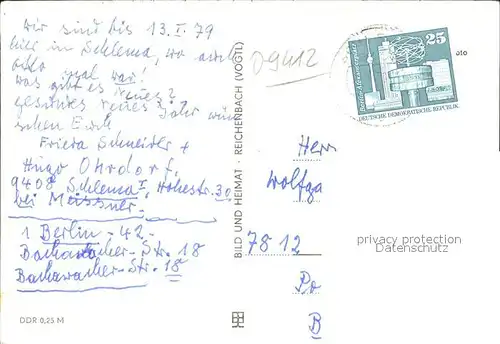 Wir sind bis 13.I.79
hier in Schlema, wo auch
Otto mal war!
Was gibt es Neues?
gesundes neues Jahr wün
schen Euch
Frieta Schneider +
Hugo Ohrdorf,
9408 Schlema I, Hohestr. 30
bei Meissner.
1 Berlin - 42 -
Bacharacher - Str. 18
Bacharacher - Str. 18
DDR 0,25 M
BILD UND HEIMAT · REICHENBACH (VOGTL)
09412
25
DEUTSCHE DEMOKRATISCHE REPUBLIK
oto
Herr
Wolfga
7812
Po
B
privacy protection
Datenschutz